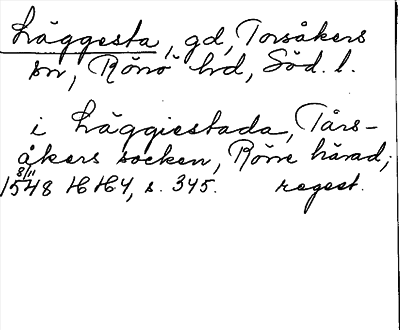 Läggesta, gd, Torsåkers
sn, Rönö hd, Söd. l.
i Läggiestada, Tårs-
åkers socken, Rönne härad;
8/11
1548 HH4, s. 345. regest.